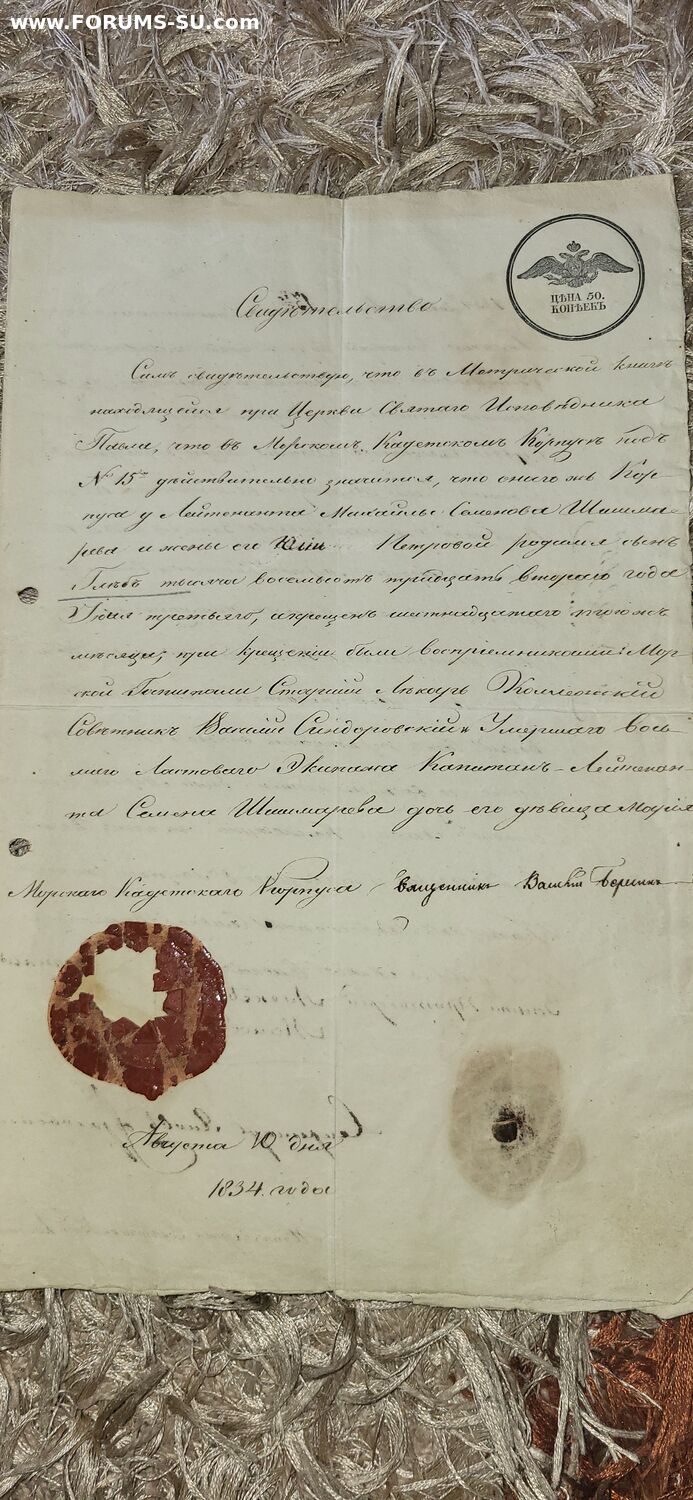 www.FORUMS-SU.com
ЦѢНА 50.
КОПѢЕКЪ
Свидѣтельство
Симъ свидѣтельствую, что въ Метрической книгѣ
находящейся при Церкви Святаго Исповѣдника
Павла, что въ Морскомъ Кадетскомъ Корпусѣ подъ
№ 15 дѣйствительно значится, что онаго жъ Кор-
пуса у Лейтенанта Михайлы Семенова Шишма-
рева и жены его Юліи Петровой родился сынъ
Глѣбъ тысяча восемьсотъ тридцать втораго года
третьяго, а крещенъ шестнадцатаго тогожъ
мѣсяца, при крещеніи были воспріемниками: Мор-
ской Гошпитали Старшій Лѣкарь Коллежскій
Совѣтникъ Василій и Умершаго вось-
маго Ластоваго Экипажа Капитанъ-Лейтенан-
та Семена Шишмарева дочь его дѣвица Марія
Морскаго Кадетскаго Корпуса Священникъ Василій
Августа 10 дня
1834. года